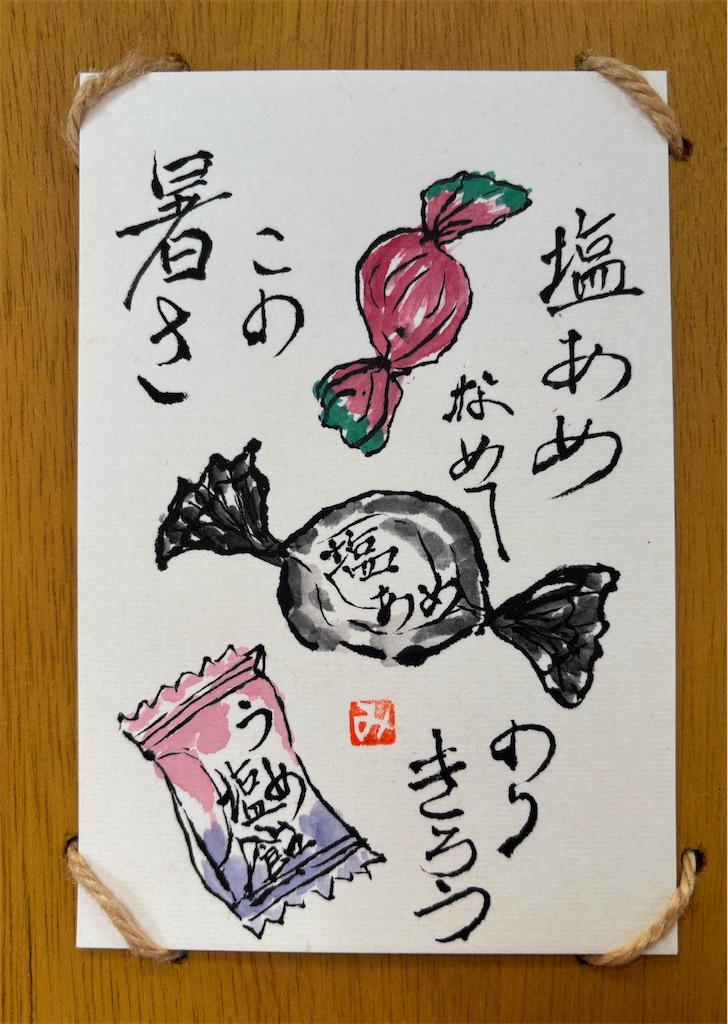 塩あめ
なめて
この
暑さ
のり
きろう
塩
あめ
うめ
塩飴
み